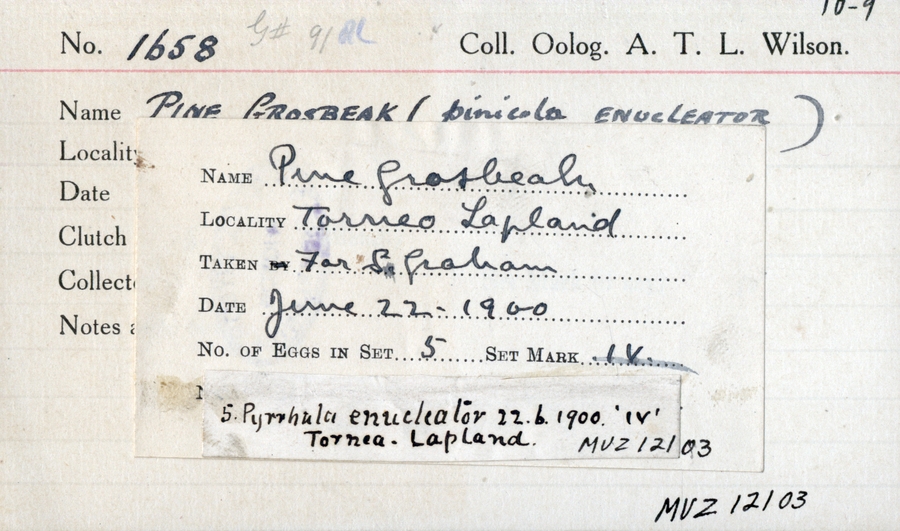 10-9
No. 1658 G# 91 Coll. Oolog. A. T. L. Wilson.
Name PINE GROSBEAK ( pinicola ENUCLEATOR )
Locality
Date
Clutch
Collect
Notes a
NAME Pine Grosbeak
LOCALITY Torneo Lapland
TAKEN by For S. Graham
DATE June 22 - 1900
NO. OF EGGS IN SET 5 SET MARK IV.
5. Pyrrhula enucleator 22.6.1900. 'IV'
Tornea - Lapland. MUZ 12103
MVZ 12103